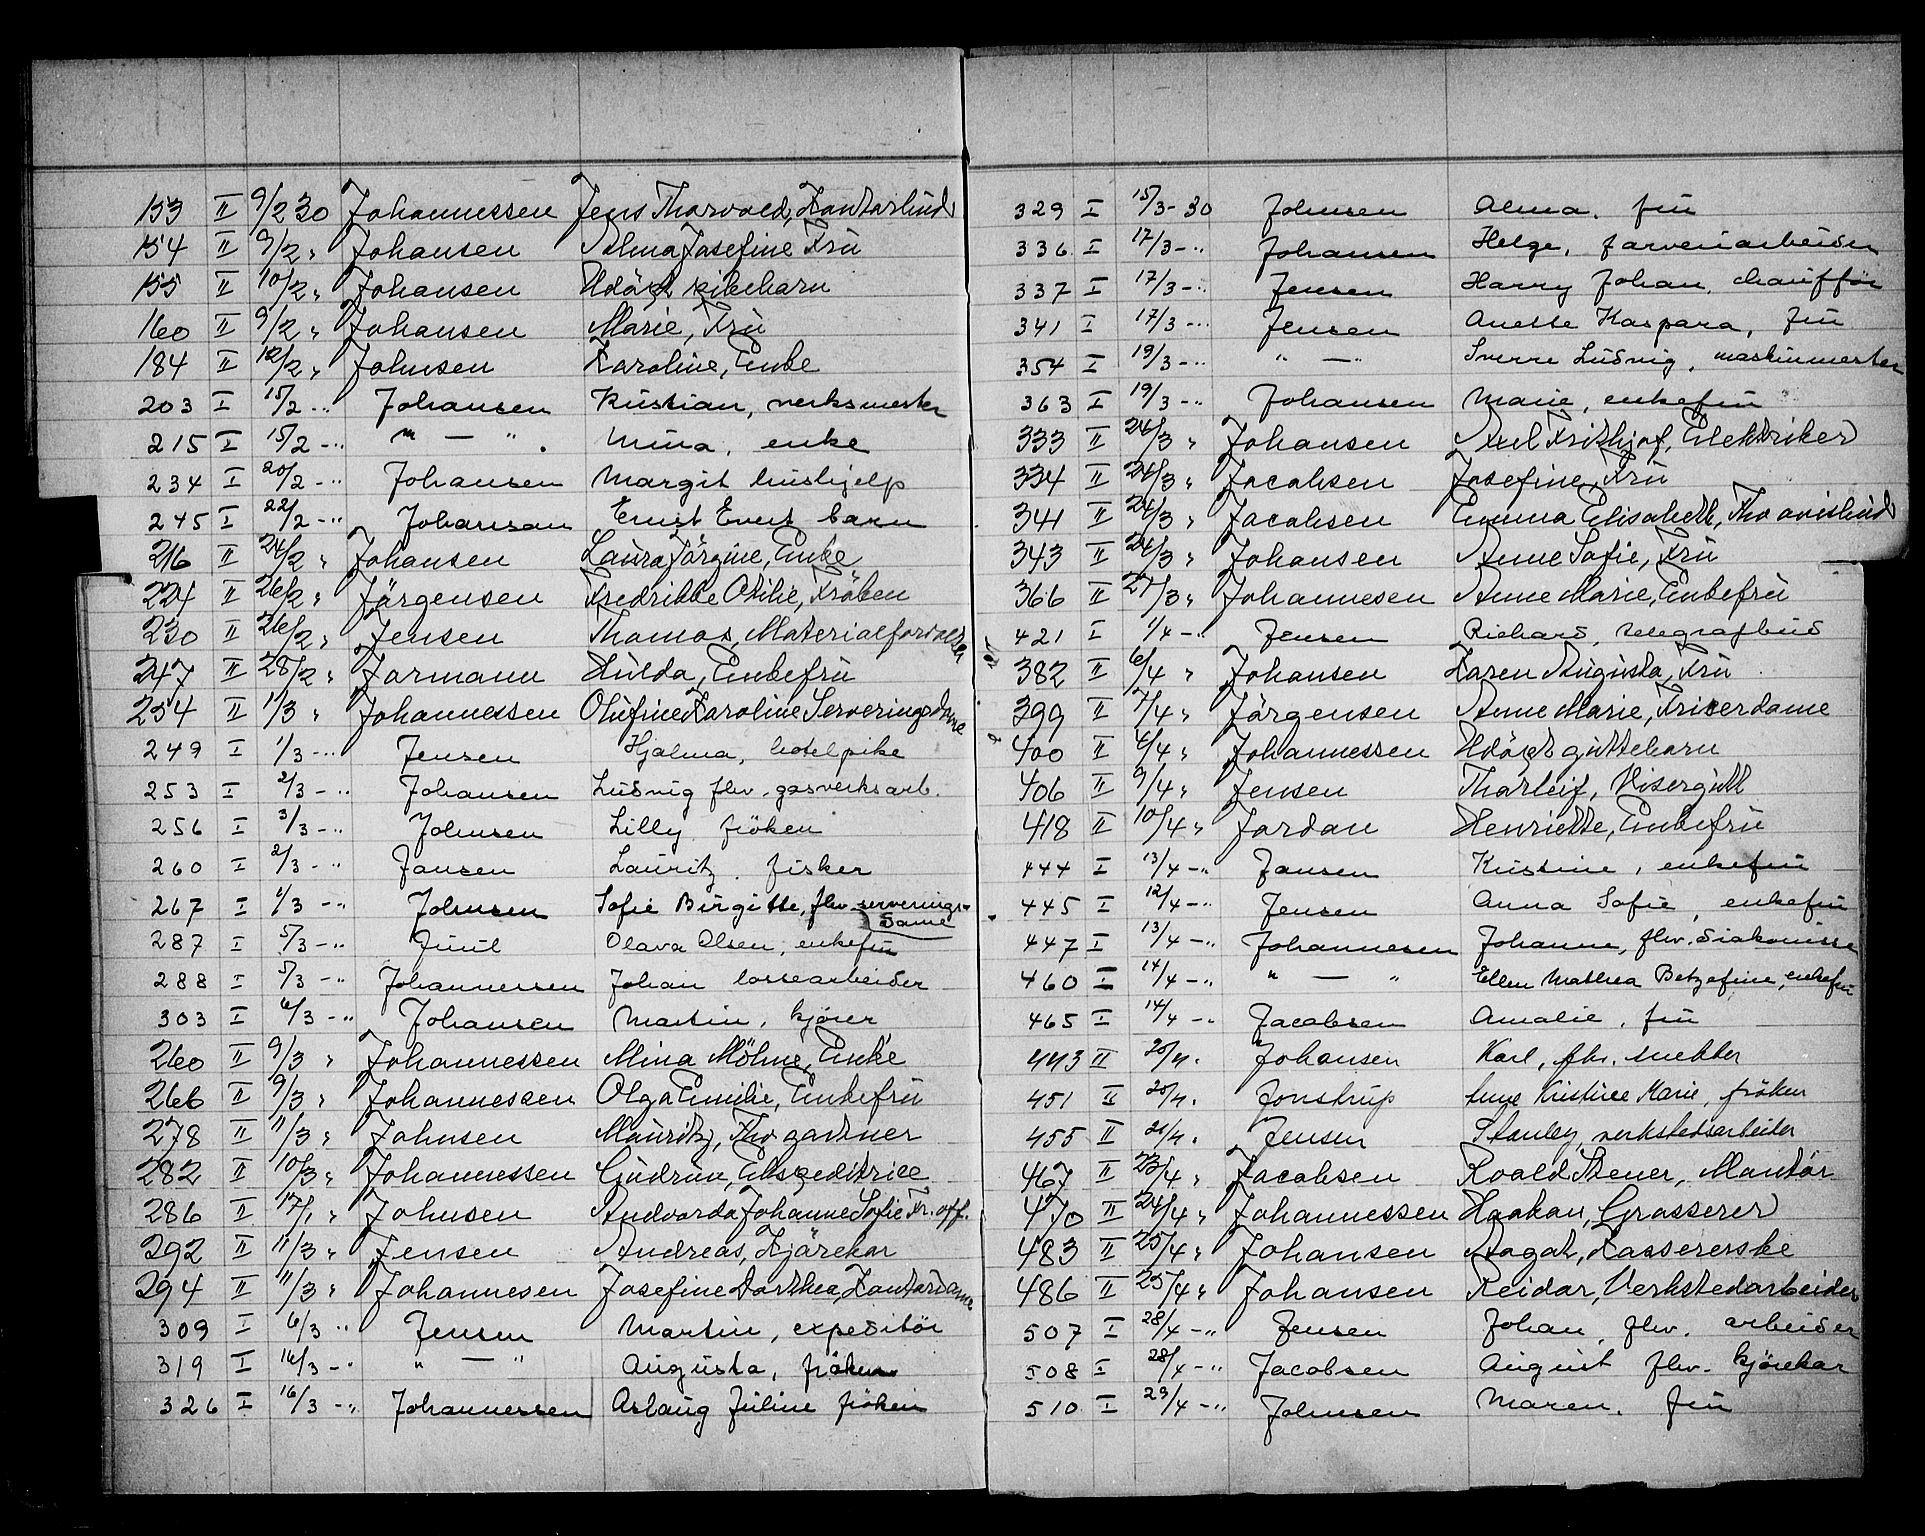 153 II 9/2 30 Johannessen Jens Thorvald, Kontorbud
154 II 9/2 " Johansen Alma Josefine Fru
155 II 10/2 " Johansen Udöpt pikebarn
160 II 9/2 " Johansen Marie, Fru
184 II 12/2 " Johnsen Karoline, Enke
203 I 15/2 -" Johansen Kristian, verksmester
215 I 15/2 -" " — " Mina, enke
234 I 20/2 -" Johansen Margit hushjelp
245 I 22/2 -" Johansen Ernst Evert barn
216 II 24/2 " Johansen Laura Jörgine, Enke
224 II 26/2 " Jörgensen Fredrikke Otilie, Fröken
230 II 26/2 " Jensen Thomas, Materialforvalter
247 II 28/2 " Jormann Hulda, Enkefru
254 II 1/3 " Johannessen Olufine Karoline Serveringsdame
249 I 1/3 -" Jensen Hjalma, hotelpike
253 I 2/3 -" Johansen Ludvig fhv. gasverksarb.
256 I 3/3 -" Johnsen Lilly fröken
260 I 2/3 -" Jansen Lauritz. fisker
267 I 6/3 -" Johnsen Sofie Birgitte, fhv. serverings-
dame
287 I 5/3 -" Juul Olava Olsen, enkefru
288 I 5/3 -" Johannessen Johan lossearbeider
303 I 6/3 -" Johansen Martin, kjörer
260 II 9/3 " Johannessen Mina Möhne, Enke
266 II 9/3 " Johannessen Olga Emilie, Enkefru
278 II 11/3 " Johnsen Mauritz, Fhv gartner
282 II 10/3 " Johannessen Gudrun, Ekspeditrice
286 II 17/1 " Johnsen Andvorda Johanne Sofie Fr. off.
292 II 11/3 " Jensen Andreas, Kjörekar
294 II 11/3 " Johannesen Josefine Dorthea, Kontordame
309 I 6/3 " Jensen Martin, expeditör
319 I 16/3 -" " — " Augusta, fröken
326 I 16/3 -" Johannessen Aslaug Juline fröken
329 I 15/3 - 30 Johnsen Alma, fru
336 I 17/3 -" Johansen Helge, farveriarbeider
337 I 17/3 -" Jensen Harry Johan, chaufför
341 I 17/3 -" Jensen Anette Kaspara, fru
354 I 19/3 -" " — " Sverre Ludvig, maskinmester
363 I 19/3 -" Johansen Marie, enkefru
333 II 24/3 " Johansen Axel Frithjof, Elektriker
334 II 24/3 " Jacobsen Josefine, Fru
341 II 24/3 " Jacobsen Emma Elisabeth, Fhv avisbud
343 II 24/3 " Johansen Anne Sofie, Fru
366 II 27/3 " Johannesen Anne Marie, Enkefru
421 I 1/4 -" Jensen Richard, telegrafbud
382 II 6/4 " Johansen Karen Augusta, Fru
399 II 7/4 " Jörgensen Anne Marie, Friserdame
400 II 6/4 " Johannessen Udöpt guttebarn
406 II 9/4 " Jensen Thorleif, Visergutt
418 II 10/4 " Jordan Henriette, Enkefru
444 I 13/4 -" Jansen Kristine, enkefru
445 I 12/4 -" Jensen Anna Sofie, enkefru
447 I 13/4 -" Johannesen Johanne, fhv. diakonisse
460 I 14/4 -" " — " Ellen Mathea Betzefine, enkefru
465 I 14/4 -" Jacobsen Amalie, fru
443 II 20/4. Johansen Karl, fhv. snekker
451 II 20/4. Jonstrup Anne Kristine Marie, fröken
455 II 21/4. Jensen Stanley, verkstedsarbeider
467 II 23/4 " Jacobsen Roald Stener, Montör
470 II 24/4 " Johannessen Haakon, Grosserer
483 II 25/4 " Johansen Aagot, Kassererske
486 II 25/4 " Johansen Reidar, Verkstedarbeider
507 I 28/4 -" Jensen Johan, fhv. arbeider
508 I 28/4 -" Jacobsen August fhv. kjörekar
510 I 29/4 -" Johnsen Maren, fru